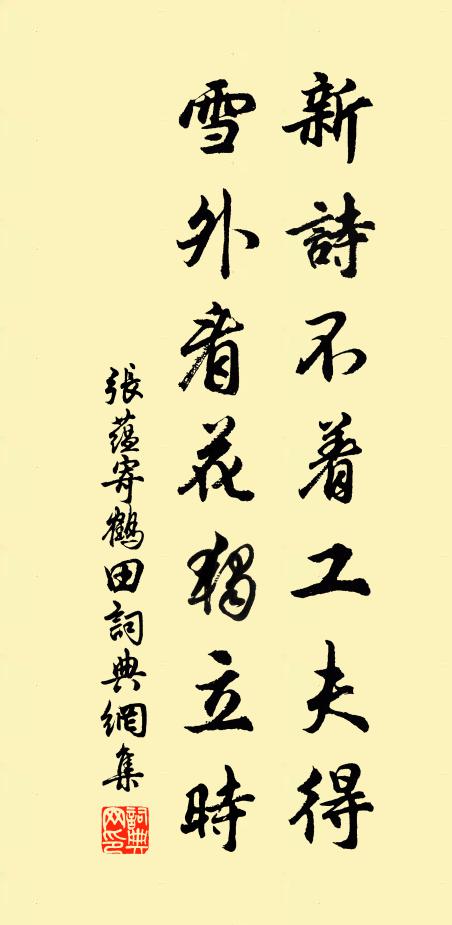 新詩不着工夫得
雪外看花獨立時
張蘊寄鶴田詞典網集
詞典网印